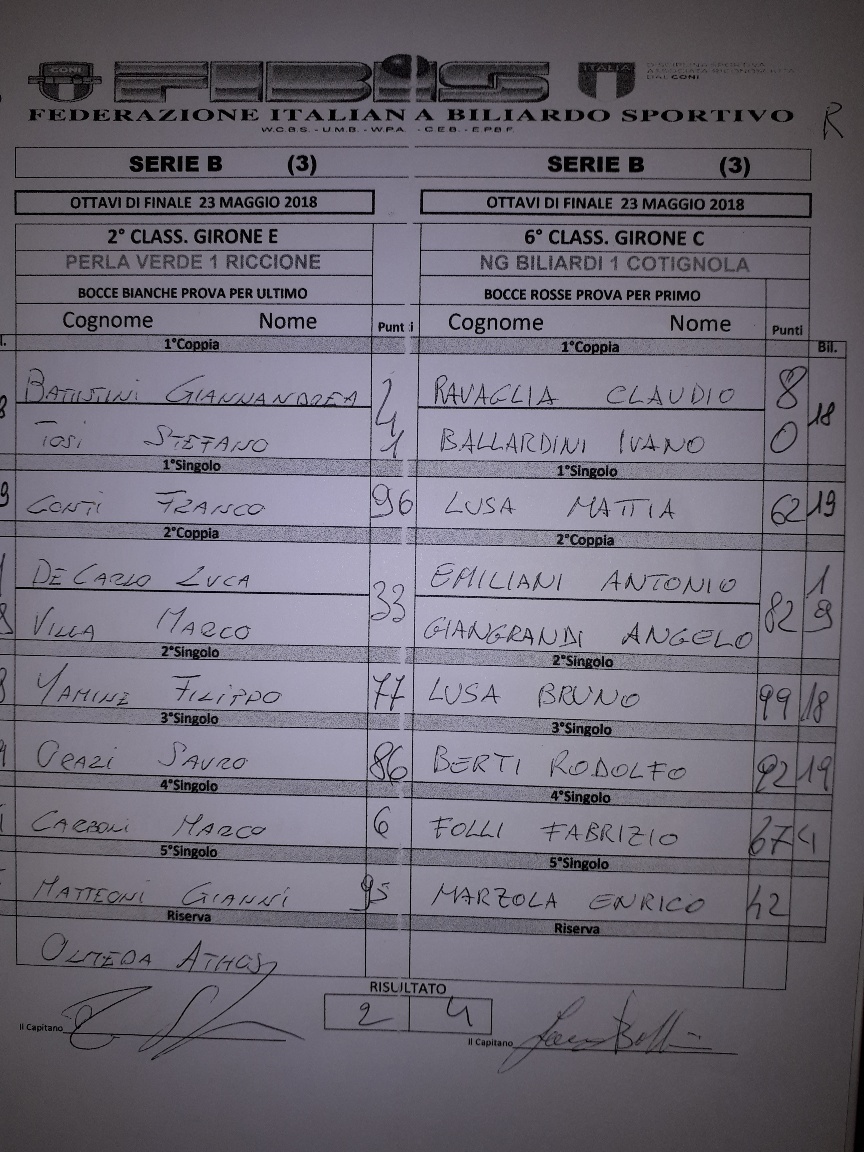 CONI FIBiS ITALIA DISCIPLINA SPORTIVA ASSOCIATA RICONOSCIUTA DAL CONI
FEDERAZIONE ITALIANA BILIARDO SPORTIVO R
W.C.B.S. - U.M.B. - W.P.A. - C.E.B. - E.P.B.F.
SERIE B (3) SERIE B (3)
OTTAVI DI FINALE 23 MAGGIO 2018 OTTAVI DI FINALE 23 MAGGIO 2018
2° CLASS. GIRONE E 6° CLASS. GIRONE C
PERLA VERDE 1 RICCIONE NG BILIARDI 1 COTIGNOLA
BOCCE BIANCHE PROVA PER ULTIMO BOCCE ROSSE PROVA PER PRIMO
Cognome Nome Punti Cognome Nome Punti
1°Coppia 1°Coppia Bil.
BATISTINI GIANNANDREA 2 RAVAGLIA CLAUDIO 8 18
TOSI STEFANO 4 1 BALLARDINI IVANO 0
1°Singolo 1°Singolo
CONTI FRANCO 96 LUSA MATTIA 62 19
2°Coppia 2°Coppia
DE CARLO LUCA 33 EMILIANI ANTONIO 82 1
VILLA MARCO GIANGRANDI ANGELO 9
2°Singolo 2°Singolo
YAMINE FILIPPO 77 LUSA BRUNO 99 18
3°Singolo 3°Singolo
ORAZI SAURO 86 BERTI RODOLFO 92 19
4°Singolo 4°Singolo
CARBONI MARCO 6 FOLLI FABRIZIO 67 4
5°Singolo 5°Singolo
MATTEONI GIANNI 95 MARZOLA ENRICO 42
Riserva Riserva
OLMEDA ATHOS
RISULTATO
2 4
Il Capitano Il Capitano